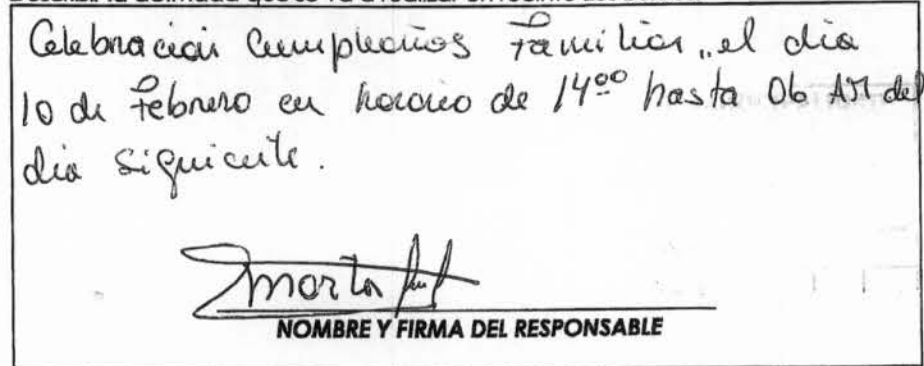 Celebración Cumpleaños Familiar, el día
10 de Febrero en horario de 14:00 hasta 06 AM del
día siguiente.
Marta
NOMBRE Y FIRMA DEL RESPONSABLE